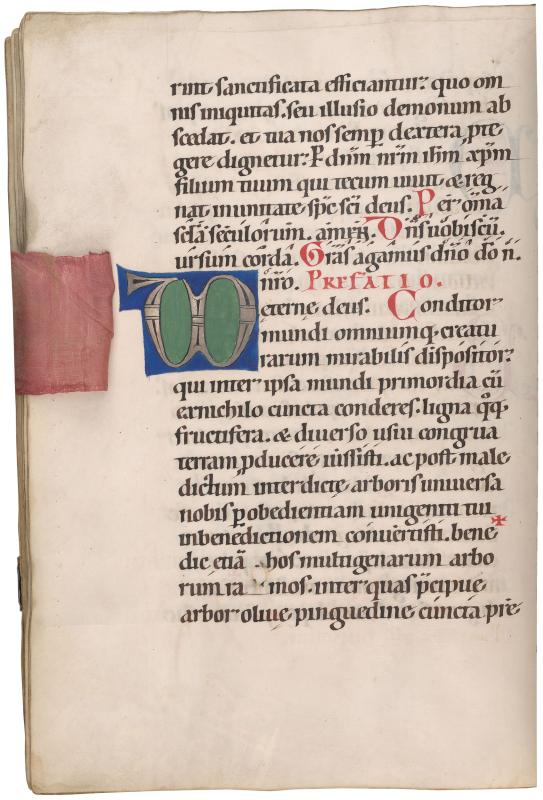 rint sanctificata efficiantur. quo om
nis iniquitas. seu illusio demonum ab
scedat. et tua nos semp dextera pte
gere dignetur. P dnm nrm ihm xpm
filium tuum qui tecum uiuit & reg
nat in unitate spc sci deus. Per oma
scla seculorum. amen. Dns uobiscu.
ursum corda. Gras agamus dno do n.
nro. PREFATIO.
eterne deus. Conditor
mundi omniumq creatu
rarum mirabilis dispositor.
qui inter ipsa mundi primordia cu
ex nichilo cuncta conderes. ligna qq
fructifera. & diuerso usui congrua
terram pducere iussisti. ac post male
dictum interdicte arboris uniuersa
nobis p obedientiam unigeniti tui
in benedictionem conuertisti. bene
dic etia hos multigenarum arbo
rum ramos. inter quas pcipue
arbor oliue pinguedine cuncta pre